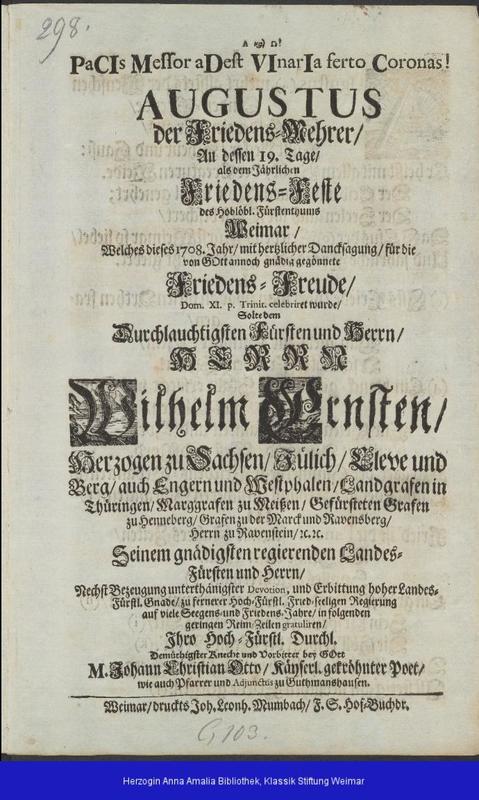 298.
PaCIs Messor aDest VInarIa ferto Coronas!
AUGUSTUS
der Friedens-Mehrer/
An dessen 19. Tage/
als dem Jährlichen
Friedens-Feste
des Hoblöbl. Fürstenthums
Weimar/
Welches dieses 1708. Jahr/ mit hertzlicher Dancksagung/ für die
von GOtt annoch gnädig gegönnete
Friedens-Freude/
Dom. XI. p. Trinit. celebriret wurde/
Solte dem
Durchlauchtigsten Fürsten und Herrn/
HERRN
Wilhelm Ernsten/
Herzogen zu Sachsen/ Jülich/ Cleve und
Berg/ auch Engern und Westphalen/ Landgrafen in
Thüringen/ Marggrafen zu Meißen/ Gefürsteten Grafen
zu Henneberg/ Grafen zu der Marck und Ravensberg/
Herrn zu Ravenstein/ ꝛc. ꝛc.
Seinem gnädigsten regierenden Landes-
Fürsten und Herrn/
Nechst Bezeugung unterthänigster Devotion, und Erbittung hoher Landes-
Fürstl. Gnade/ zu fernerer Hoch-Fürstl. Fried-seeligen Regierung
auf viele Seegens- und Friedens-Jahre/ in folgenden
geringen Reim-Zeilen gratuliren/
Ihro Hoch-Fürstl. Durchl.
Demüthigster Knecht und Vorbitter bey GOtt
M. Johann Christian Otto/ Käyserl. gekröhnter Poet/
wie auch Pfarrer und Adjunctus zu Guthmanshausen.
Weimar/ druckts Joh. Leonh. Mumbach/ F. S. Hof-Buchdr.
G, 103.
Herzogin Anna Amalia Bibliothek, Klassik Stiftung Weimar